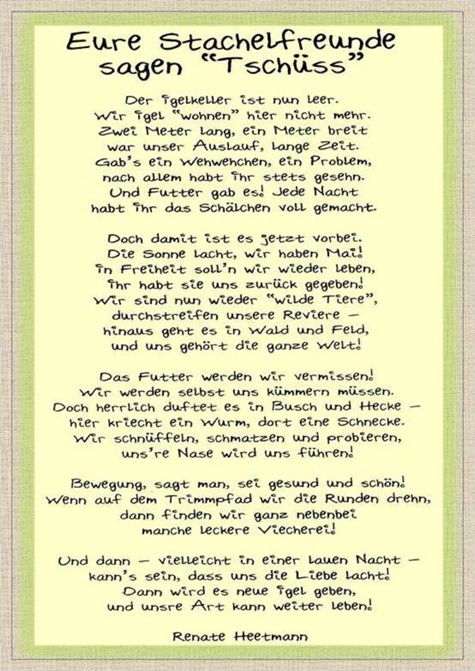 Eure Stachelfreunde
sagen "Tschüss"
Der Igelkeller ist nun leer.
Wir Igel "wohnen" hier nicht mehr.
Zwei Meter lang, ein Meter breit
war unser Auslauf, lange Zeit.
Gab's ein Wehwehchen, ein Problem,
nach allem habt ihr stets gesehn.
Und Futter gab es! Jede Nacht
habt ihr das Schälchen voll gemacht.
Doch damit ist es jetzt vorbei.
Die Sonne lacht, wir haben Mai!
In Freiheit soll'n wir wieder leben,
ihr habt sie uns zurück gegeben!
Wir sind nun wieder "wilde Tiere",
durchstreifen unsere Reviere –
hinaus geht es in Wald und Feld,
und uns gehört die ganze Welt!
Das Futter werden wir vermissen!
Wir werden selbst uns kümmern müssen.
Doch herrlich duftet es in Busch und Hecke –
hier kriecht ein Wurm, dort eine Schnecke.
Wir schnüffeln, schmatzen und probieren,
uns're Nase wird uns führen!
Bewegung, sagt man, sei gesund und schön!
Wenn auf dem Trimmpfad wir die Runden drehn,
dann finden wir ganz nebenbei
manche leckere Viecherei!
Und dann – vielleicht in einer lauen Nacht –
kann's sein, dass uns die Liebe lacht!
Dann wird es neue Igel geben,
und unsre Art kann weiter leben!
Renate Heetmann